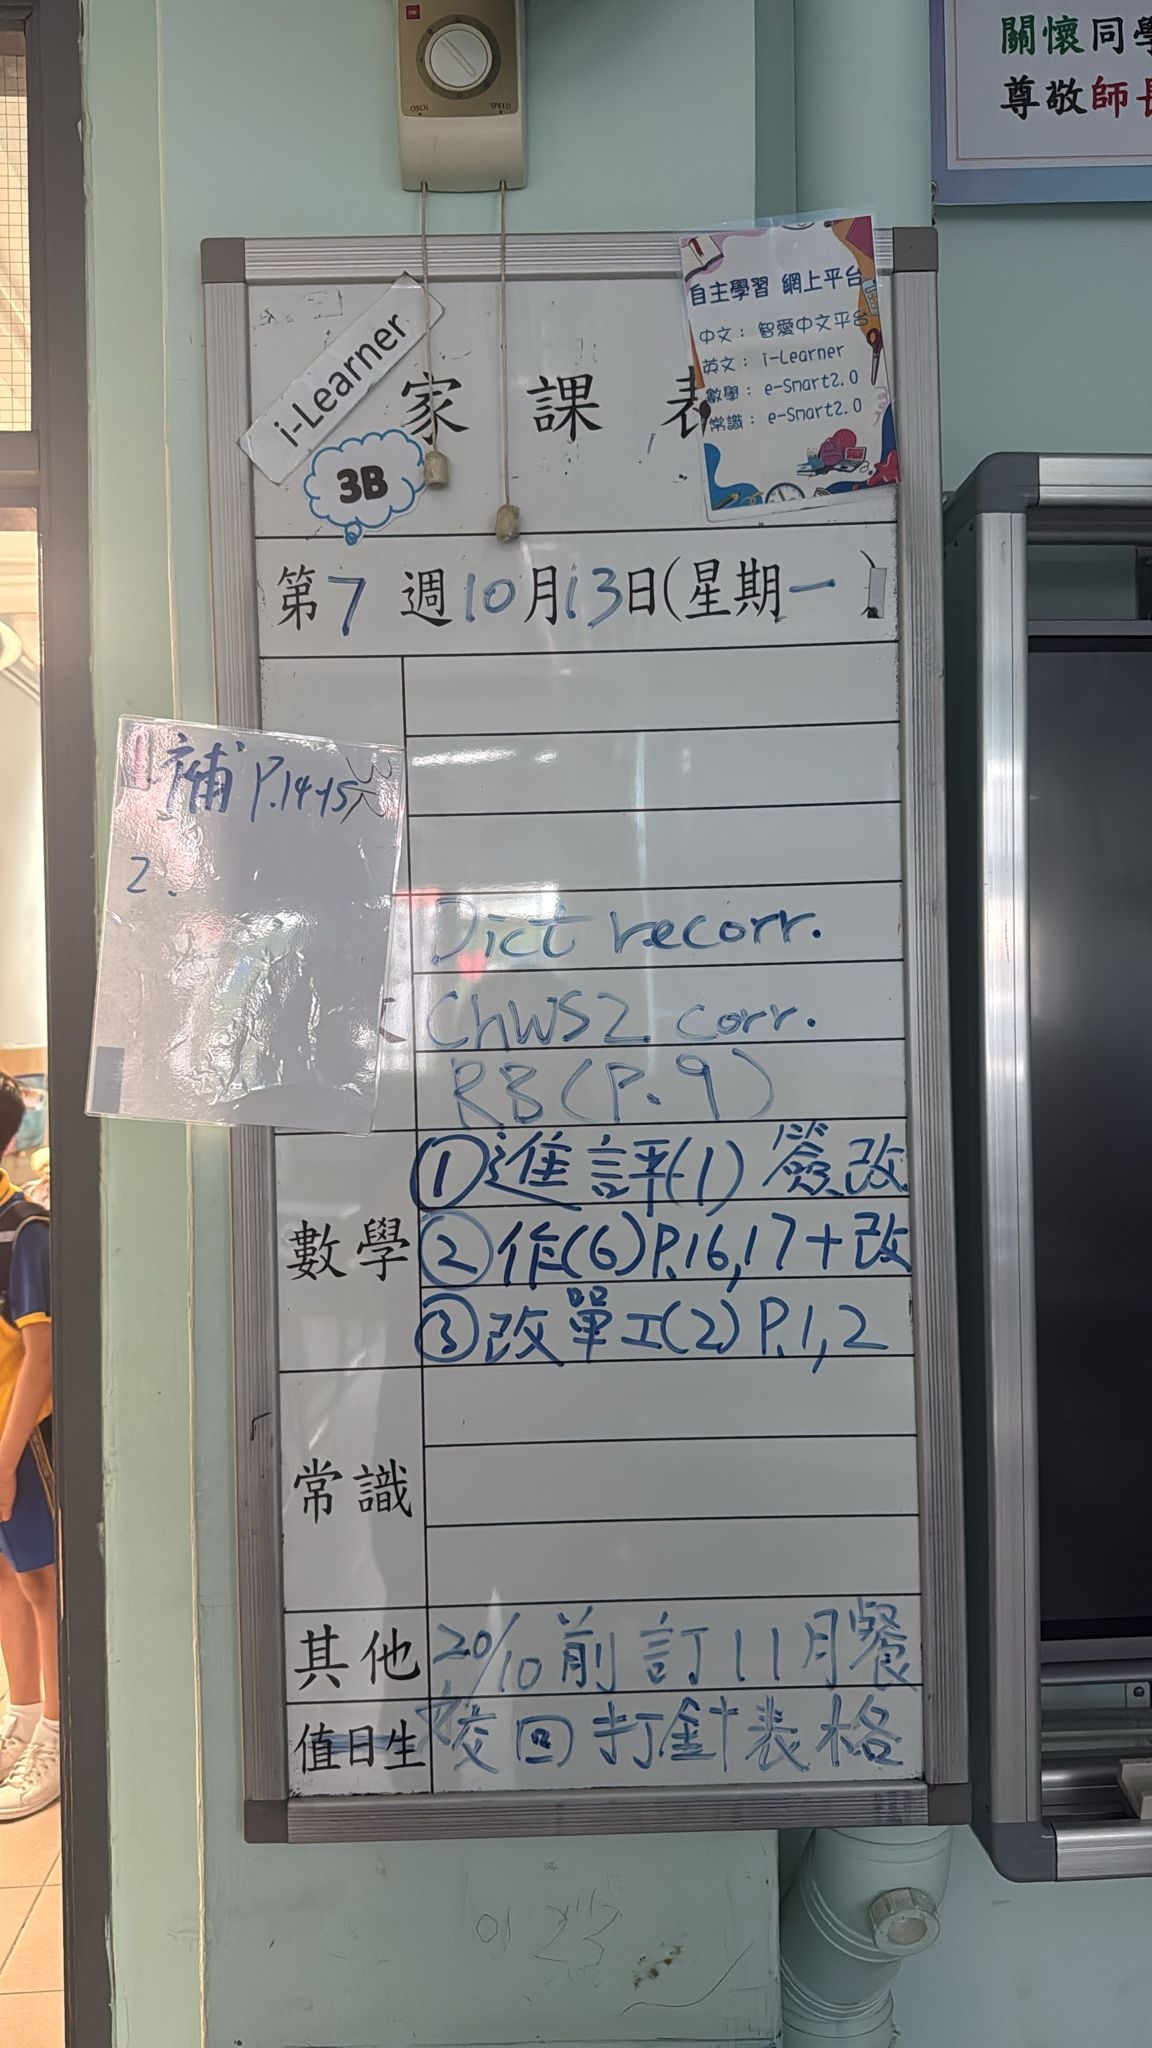 關懷同學
尊敬師長
OSCIL SPEED
i-Learner
家課表
3B
自主學習 網上平台
中文：智愛中文平台
英文：i-Learner
數學：e-Smart2.0
常識：e-Smart2.0
第7週10月13日(星期一)
1.補P.14-15
2.
Dict recorr.
文
ChWS2 corr.
RB(P.9)
數學
①進評(1)簽改
②作(6)P.16,17+改
③改單工(2)P.1,2
常識
其他
20/10前訂11月餐
值日生
交回打針表格